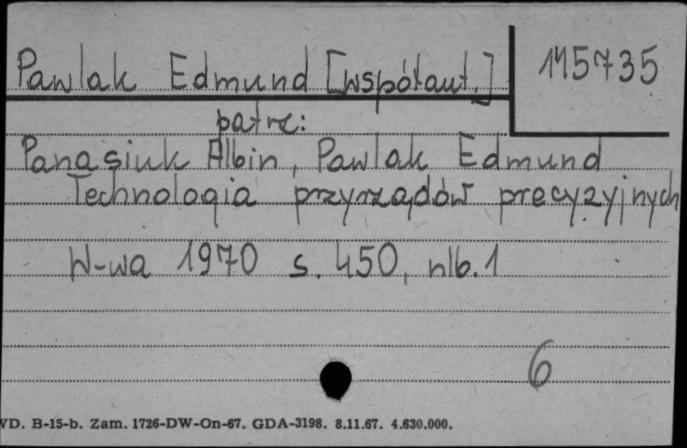 Pawlak Edmund [współaut.] 115735
patrz:
Panasiuk Albin, Pawlak Edmund
Technologia przyrządów precyzyjnych
W-wa 1970 s. 450, nlb. 1
6
VD. B-15-b. Zam. 1726-DW-On-67. GDA-3198. 8.11.67. 4.630.000.